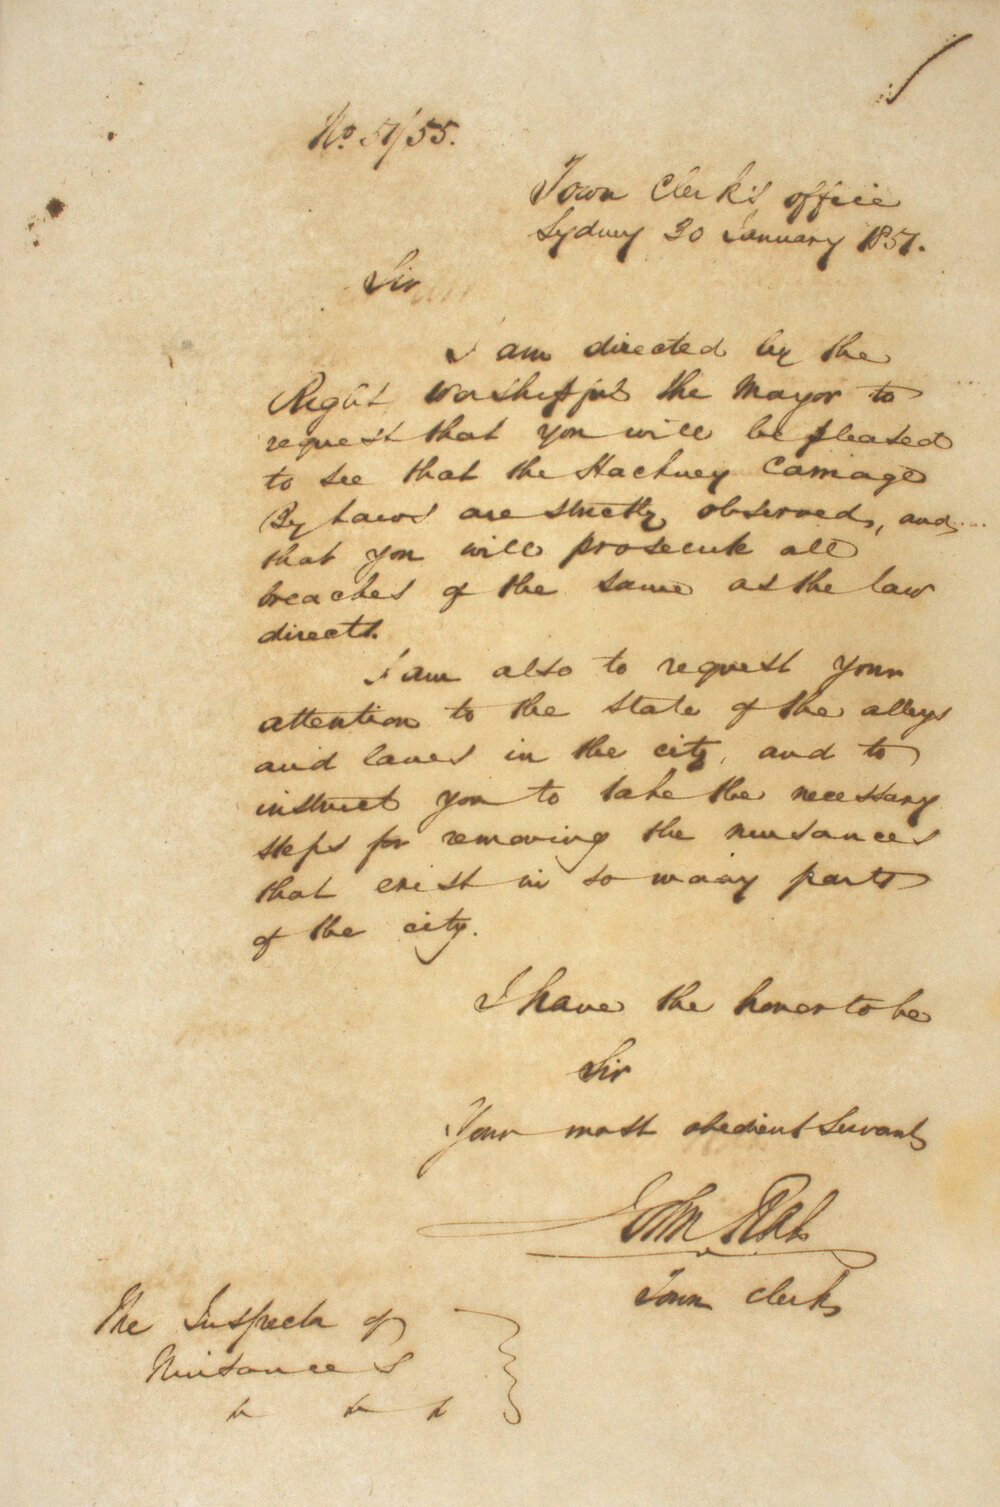 No. 57/55.
Town Clerk's office
Sydney 30 January 1857.
Sir
I am directed by the
Right Worshipful the Mayor to
request that you will be pleased
to see that the Hackney Carriage
By Laws are strictly observed, and
that you will prosecute all
breaches of the same as the law
directs.
I am also to request your
attention to the state of the alleys
and lanes in the city, and to
instruct you to take the necessary
steps for removing the nuisances
that exist in so many parts
of the city.
I have the honor to be
Sir
Your most obedient Servant
John Rae
Town Clerk
The Inspector of
Nuisances